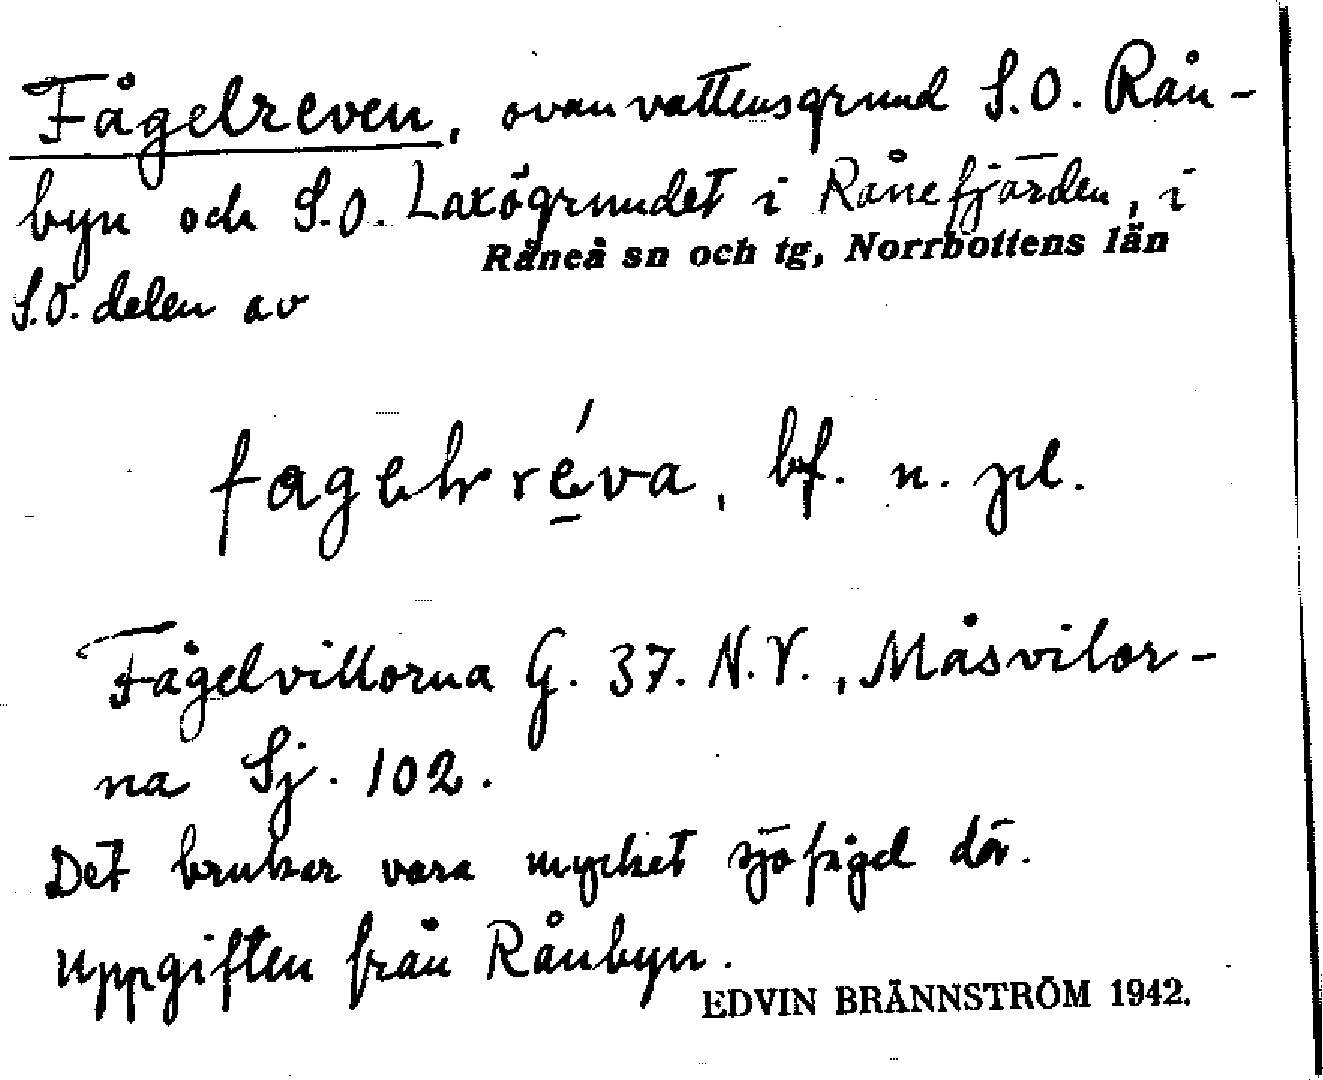 Fågelreven, ovanvattensgrund S.O. Rån-
byn och S.O. Laxögrundet i Rånefjärden, i
Råneå sn och tg, Norrbottens län
S.O. delen av
fagelréva, bf. n. pl.
Fågelvillorna G. 37. N.V., Måsvilor-
na Sj. 102.
Det bruker vara mycket sjöfågel där.
Uppgiften från Rånbyn.
EDVIN BRÄNNSTRÖM 1942.